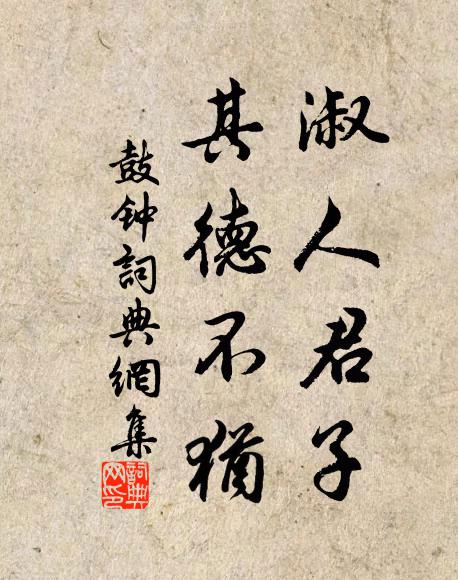 淑人君子
其德不猶
鼓钟詞典網集
詞典网印